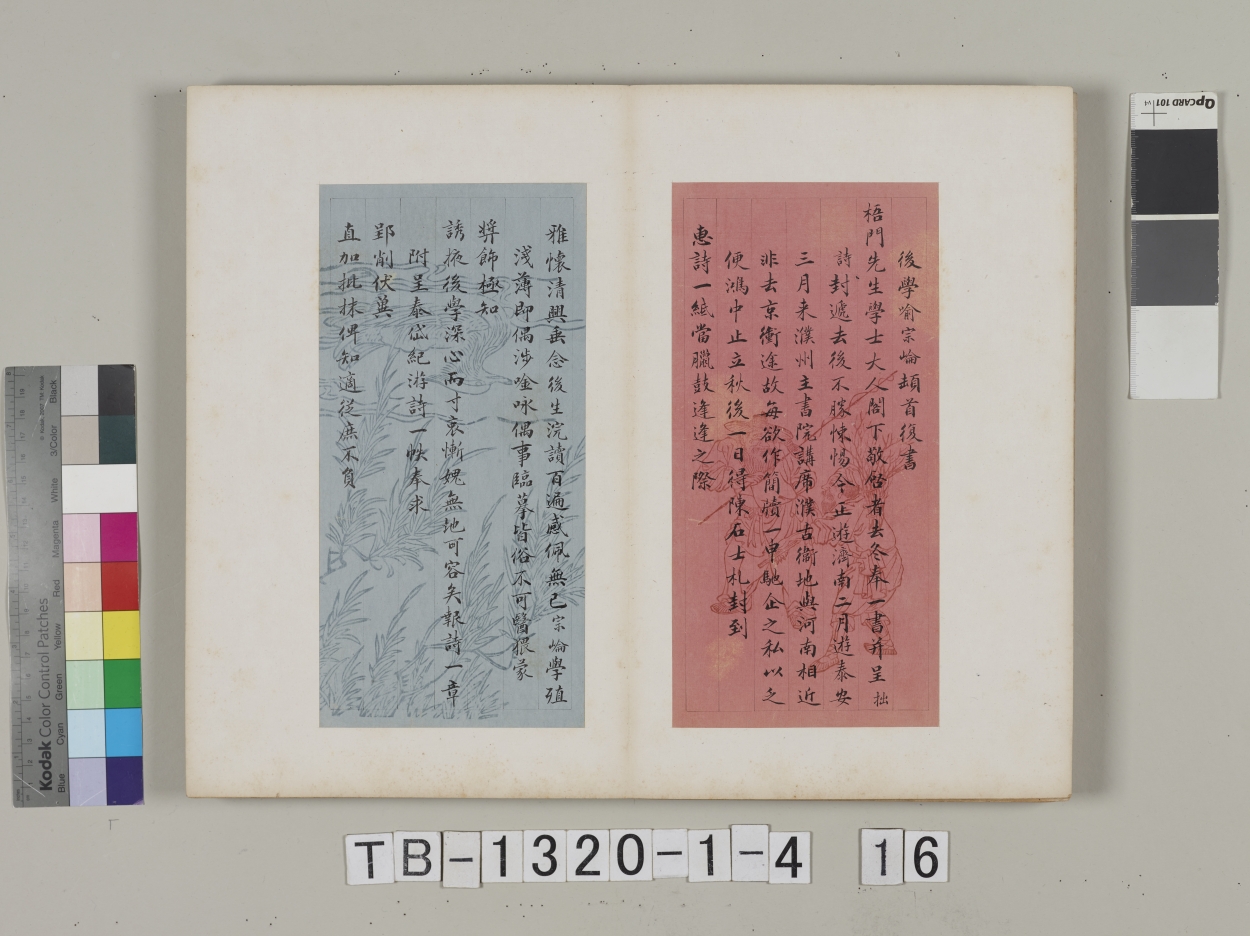 後學喻宗崘頓首復書
梧門先生學士大人閣下敬啓者去冬奉一書并呈拙
詩封遞去後不勝悚惕今正遊濟南二月遊泰安
三月来濮州主書院講席濮古衞地與河南相近
非去京衝途故每欲作簡牘一申馳企之私以乏
便鴻中止立秋後一日得陳石士札封到
惠詩一紙當臘鼓逢逢之際
雅懷清興垂念後生浣讀百遍感佩無已宗崘學殖
淺薄即偶涉唫咏偶事臨摹皆俗不可醫猥蒙
奨飾極知
誘掖後學深心而寸衷慚媿無地可容矣報詩一章
附呈泰岱紀游詩一帙奉求
郢削伏冀
直加批抹俾知適從庶不負
TB-1320-1-4 16
QPCARD 101 v4
Kodak Color Control Patches
Blue Cyan Green Yellow Red Magenta White 3/Color Black